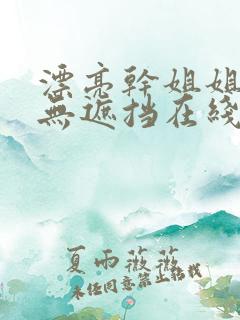 漂亮幹姐姐
無遮挡在綫
夏雨薇薇
未经同意禁止转载